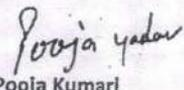 Pooja yadav
Pooja Kumari